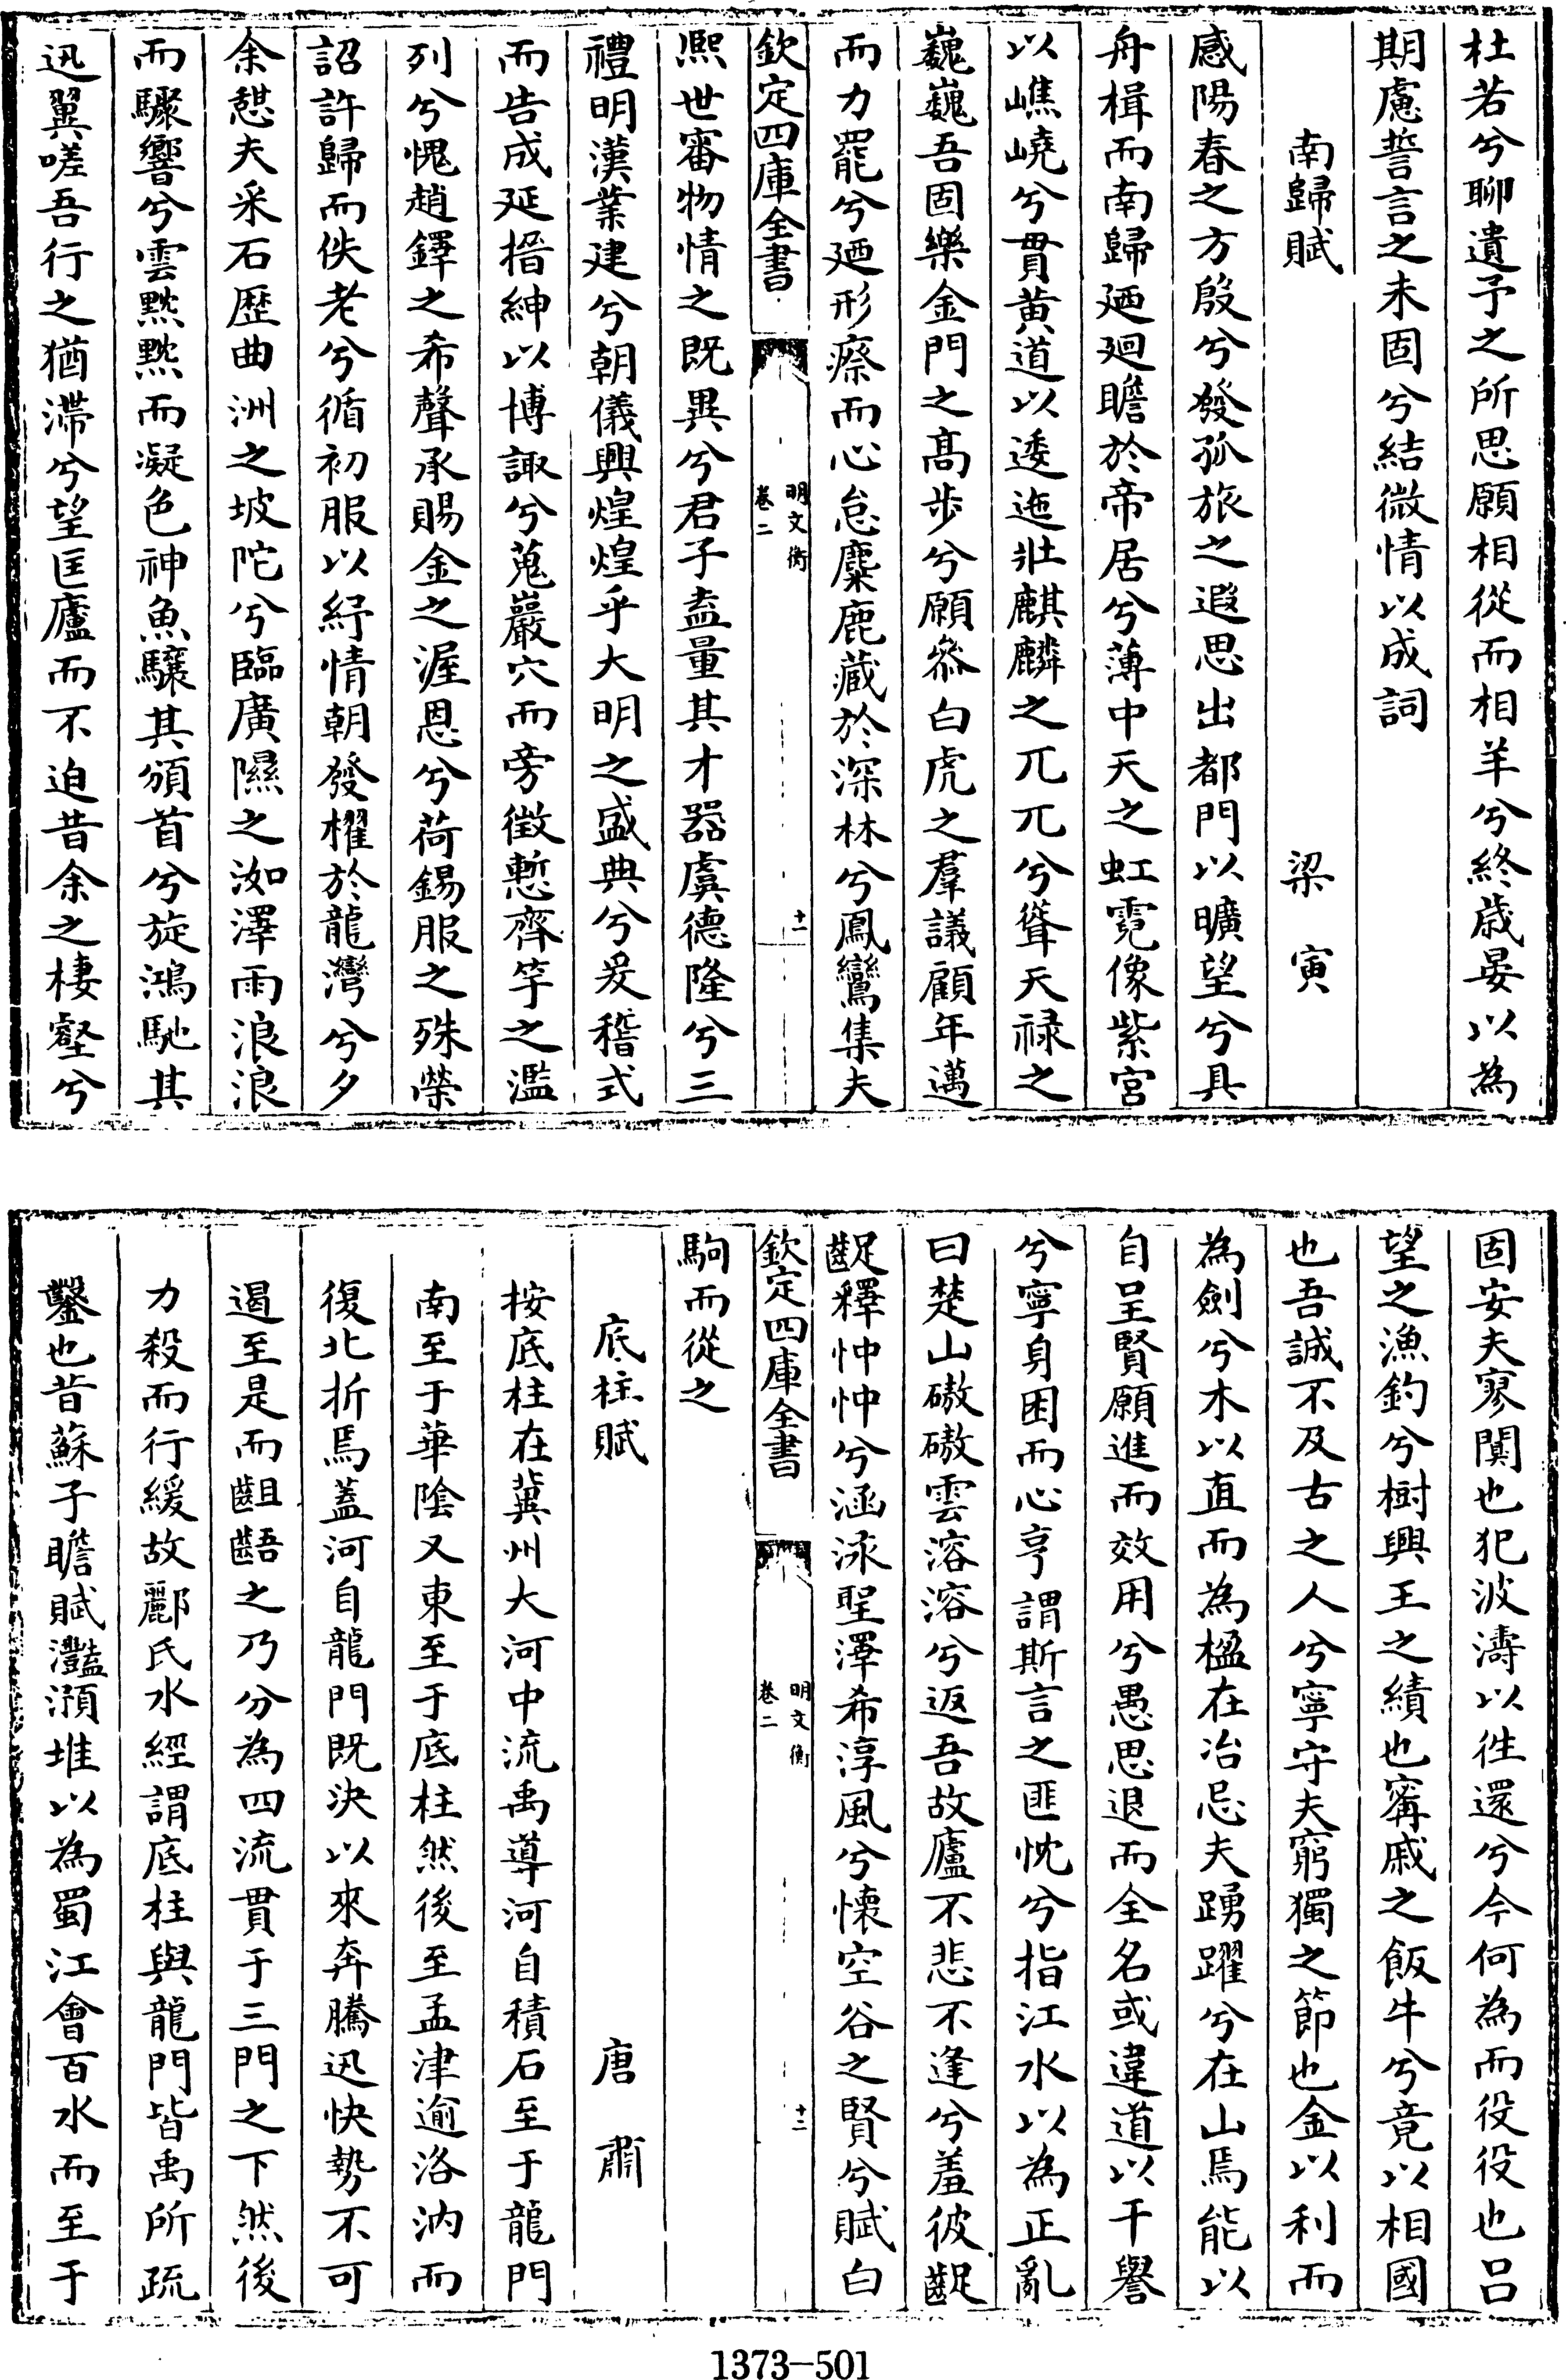 杜若兮聊遺予之所思願相從而相羊兮終歲晏以為
期慮誓言之未固兮結微情以成詞
南歸賦　梁寅
感陽春之方殷兮發孤旅之遐思出都門以曠望兮具
舟楫而南歸廼廻瞻於帝居兮薄中天之虹霓像紫宮
以嶕嶢兮貫黄道以逶迤壯麒麟之兀兀兮聳天祿之
巍巍吾固樂金門之髙步兮願叅白虎之羣議顧年邁
而力罷兮廼形瘵而心怠麋鹿藏於深林兮鳳鸞集夫
欽定四庫全書
明文衡
卷二
十一
熈世審物情之既異兮君子盍量其才器虞德隆兮三
禮明漢業建兮朝儀興煌煌乎大明之盛典兮爰稽式
而告成延搢紳以博諏兮蒐巖穴而旁徵慙齊竽之濫
列兮愧趙鐸之希聲承賜金之渥恩兮荷錫服之殊榮
詔許歸而佚老兮循初服以紓情朝發櫂於龍灣兮夕
余憇夫采石歴曲洲之坡陀兮臨廣隰之洳澤雨浪浪
而驟響兮雲黙黙而凝色神魚驤其頒首兮旋鴻馳其
迅翼嗟吾行之猶滯兮望匡廬而不迫昔余之棲壑兮
固安夫寥闃也犯波濤以徃還兮今何為而役役也吕
望之漁釣兮樹興王之績也甯戚之飯牛兮竟以相國
也吾誠不及古之人兮寧守夫窮獨之節也金以利而
為劍兮木以直而為楹在冶忌夫踴躍兮在山焉能以
自呈賢願進而效用兮愚思退而全名或違道以干譽
兮寧身困而心亨謂斯言之匪忱兮指江水以為正亂
曰楚山磝磝雲溶溶兮返吾故廬不悲不逢兮羞彼齪
齪釋忡忡兮涵泳聖澤希淳風兮懐空谷之賢兮賦白
欽定四庫全書
明文衡
卷二
十二
駒而從之
底柱賦　唐肅
按底柱在冀州大河中流禹導河自積石至于龍門
南至于華隂又東至于底柱然後至孟津逾洛汭而
復北折焉蓋河自龍門既決以來奔騰迅快勢不可
遏至是而齟齬之乃分為四流貫于三門之下然後
力殺而行緩故酈氏水經謂底柱與龍門皆禹所疏
鑿也昔蘇子瞻賦灩澦堆以為蜀江會百水而至于
1373-501